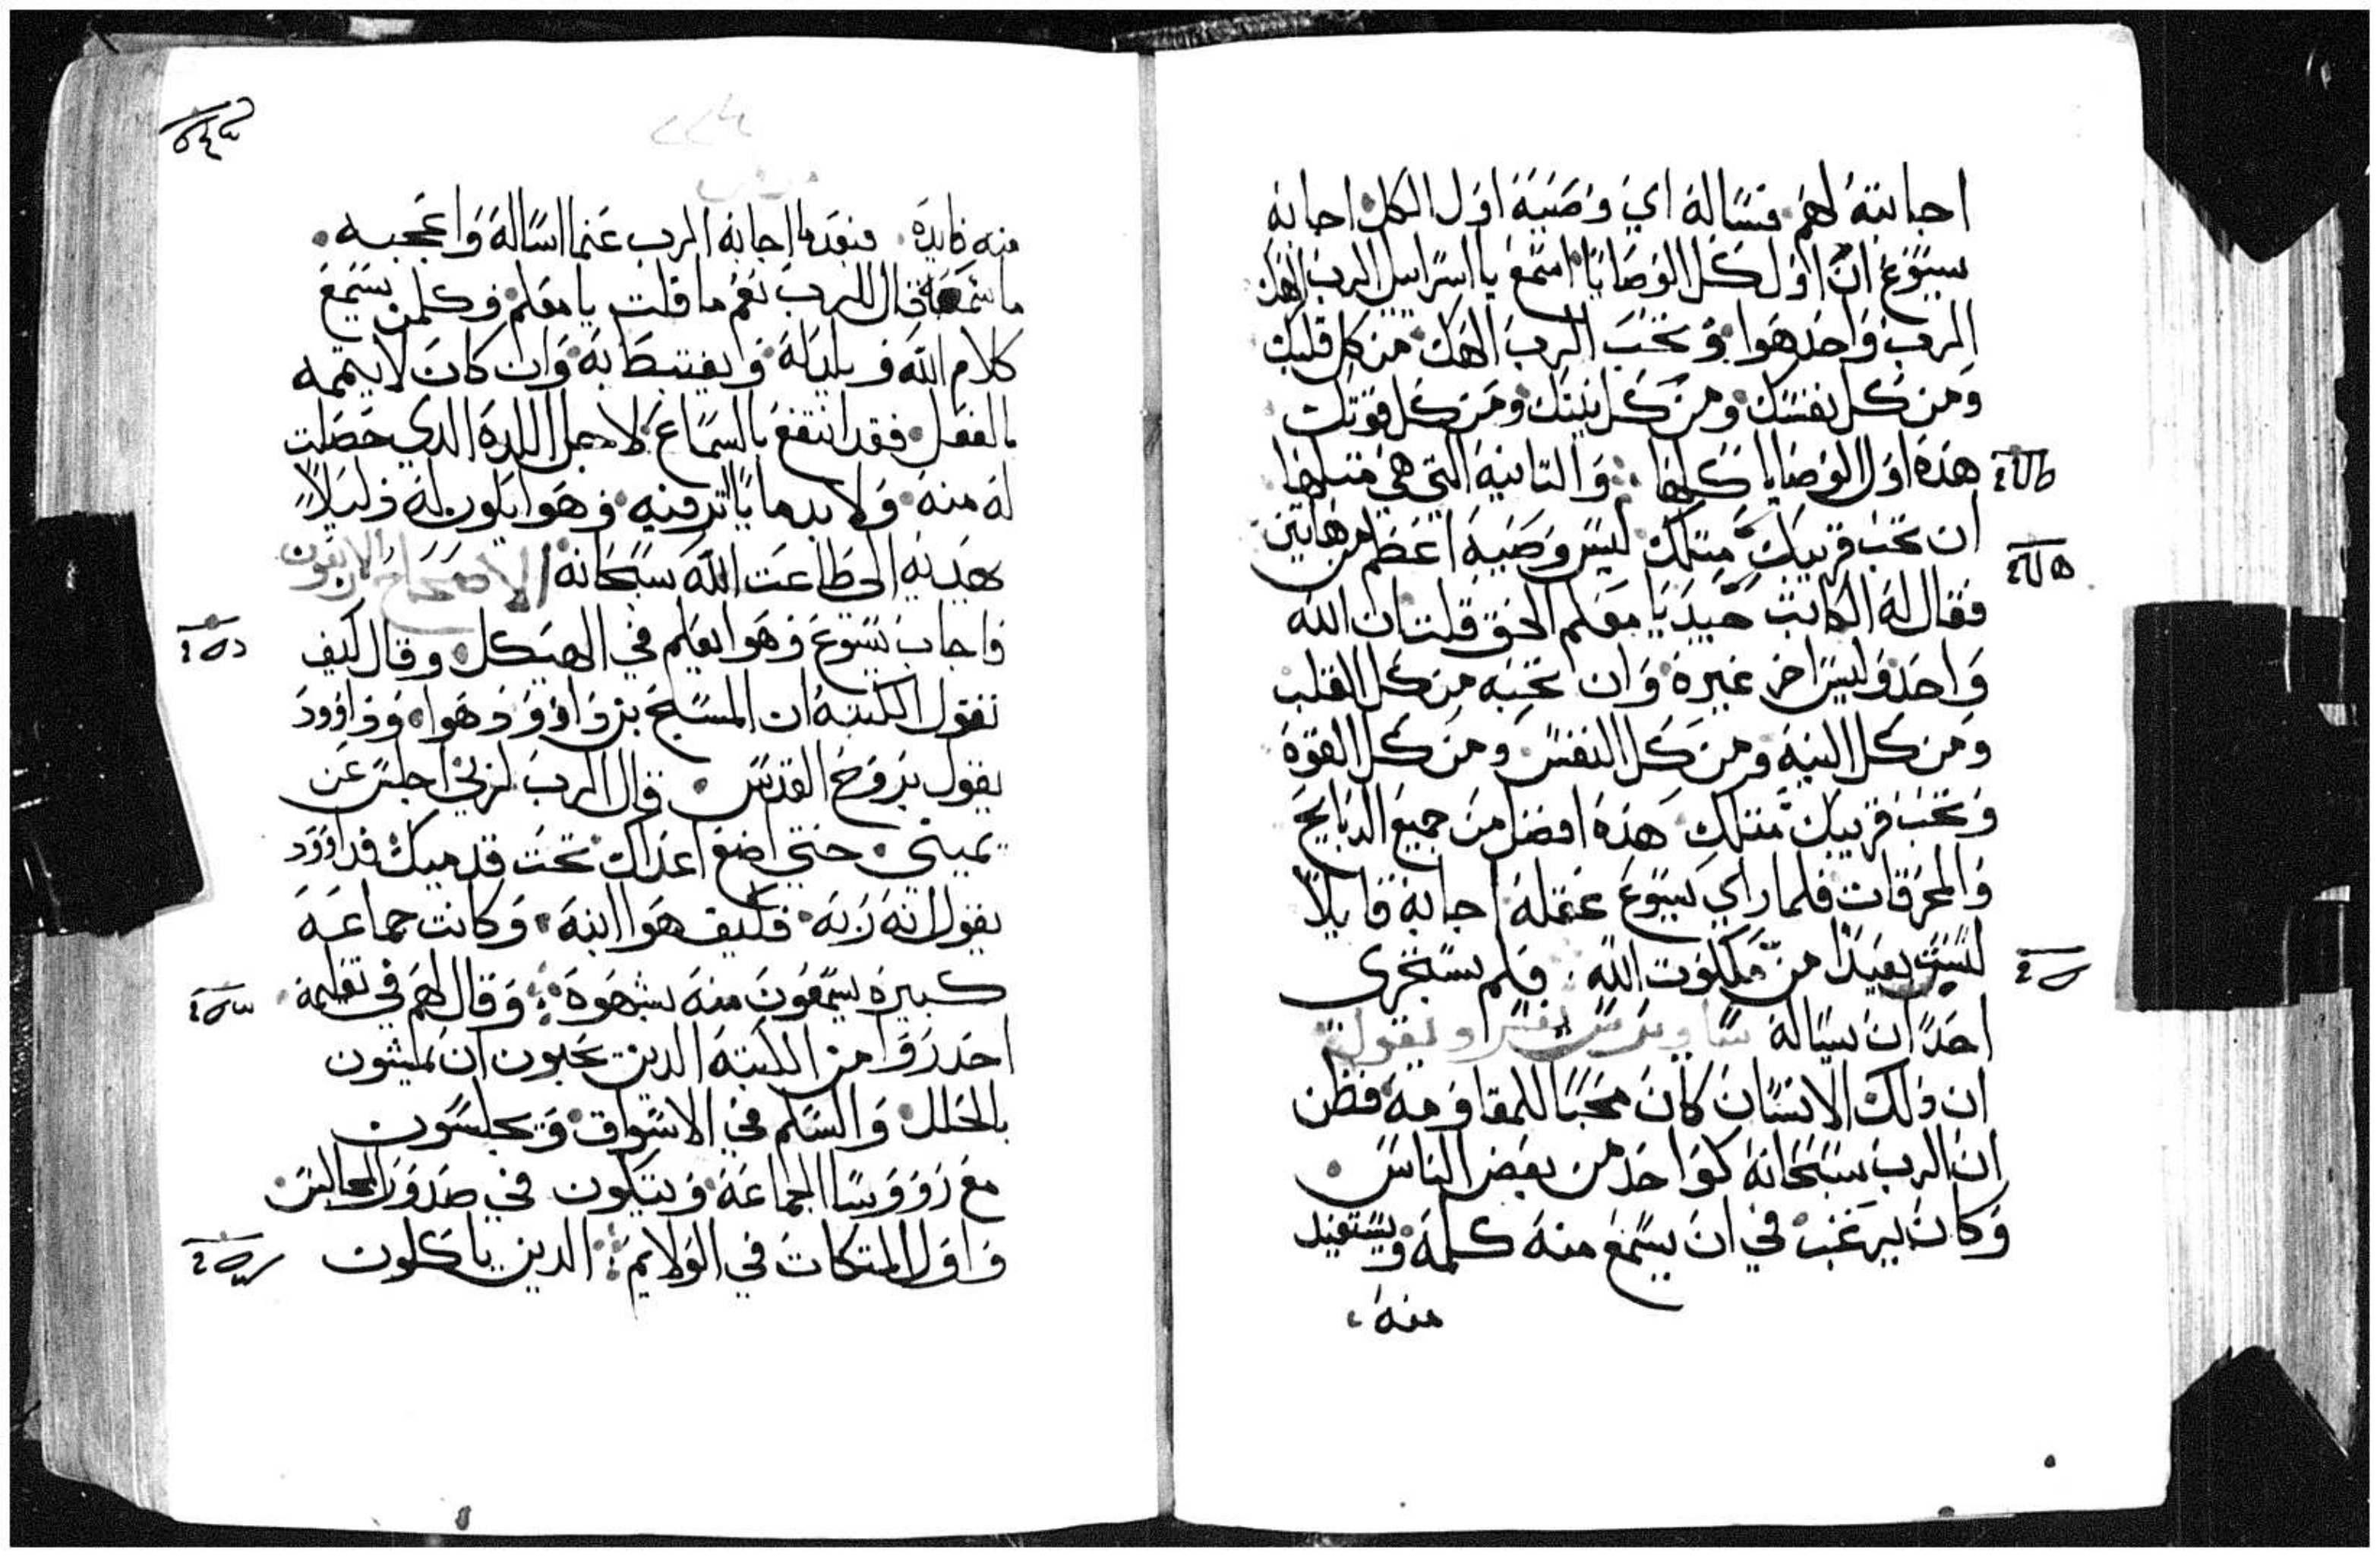 اجابته لهم فسًاله اي وصَيَة اول الكل اجابه
يسوع ان اول كل الوصَايا اسمع يا اسراييل الرب الهك
الرب واحد هوا وتحب الرب الهك من كل قلبك
ومن كل نفسك ومن كل نيتك ومن كل قوتك
هده اول الوصايا كلها والتانيه التي هي متلها
ان تحب قريبك متلك ليس وصيه اعظم من هاتين
فقال له الكاتب جيد يا معلم الحق قلت ان الله
واحد وليس اخر غيره وان تحبه من كل القلب
ومن كل النيه ومن كل النفس ومن كل القوة
وتحب قريبك متلك هده افضل من جميع الدبايح
والمحرقات فلما راي يسوع عقله اجابه قايلاً
لست بعيدا من ملكوت الله فلم يستجرى
احدًا ان يساله
ان دلك الانسان كان محبًا للمقاومه فظن
ان الرب سبحانه كواحد من بعض الناس
وكان يرغب في ان يسمع منه كلمه ويستفيد
منه
منه فايده فبعدما اجابه الرب عنما اساله واعجبه
ما سمعه قال للرب نعم ما قلت يا معلم وكلمن يسمع
كلام الله ويلد له ويغتبط به وان كان لا يتممه
بالفعل فقد انتفع بالسماع لاجل اللده الدي حصلت
له منه ولا بد ما ياتر فيه وهوا يكون له دليلاً
يهديه الى طاعت الله سبحانه الاصحاح الاربعون
فاجاب يسوع وهوا يعلم في الهيكل وقال كيف
تقول الكتبه ان المسيح بن داوود هوا وداوود
يقول بروح القدس قال الرب لربي اجلس عن
يميني حتي اضع اعداك تحت قدميك فداوود
يقول انه ربه فكيف هوا ابنه وكانت جماعه
كبيره يسمعون منه بشهوه وقال لهم في تعليمه
احدروا من الكتبه الدين يحبون ان يمشون
بالحلل والسلم في الاسواق ويجلسون
مع رووسا الجماعه ويتكون في صدور المجالس
واول المتكات في الولايم الدين ياكلون